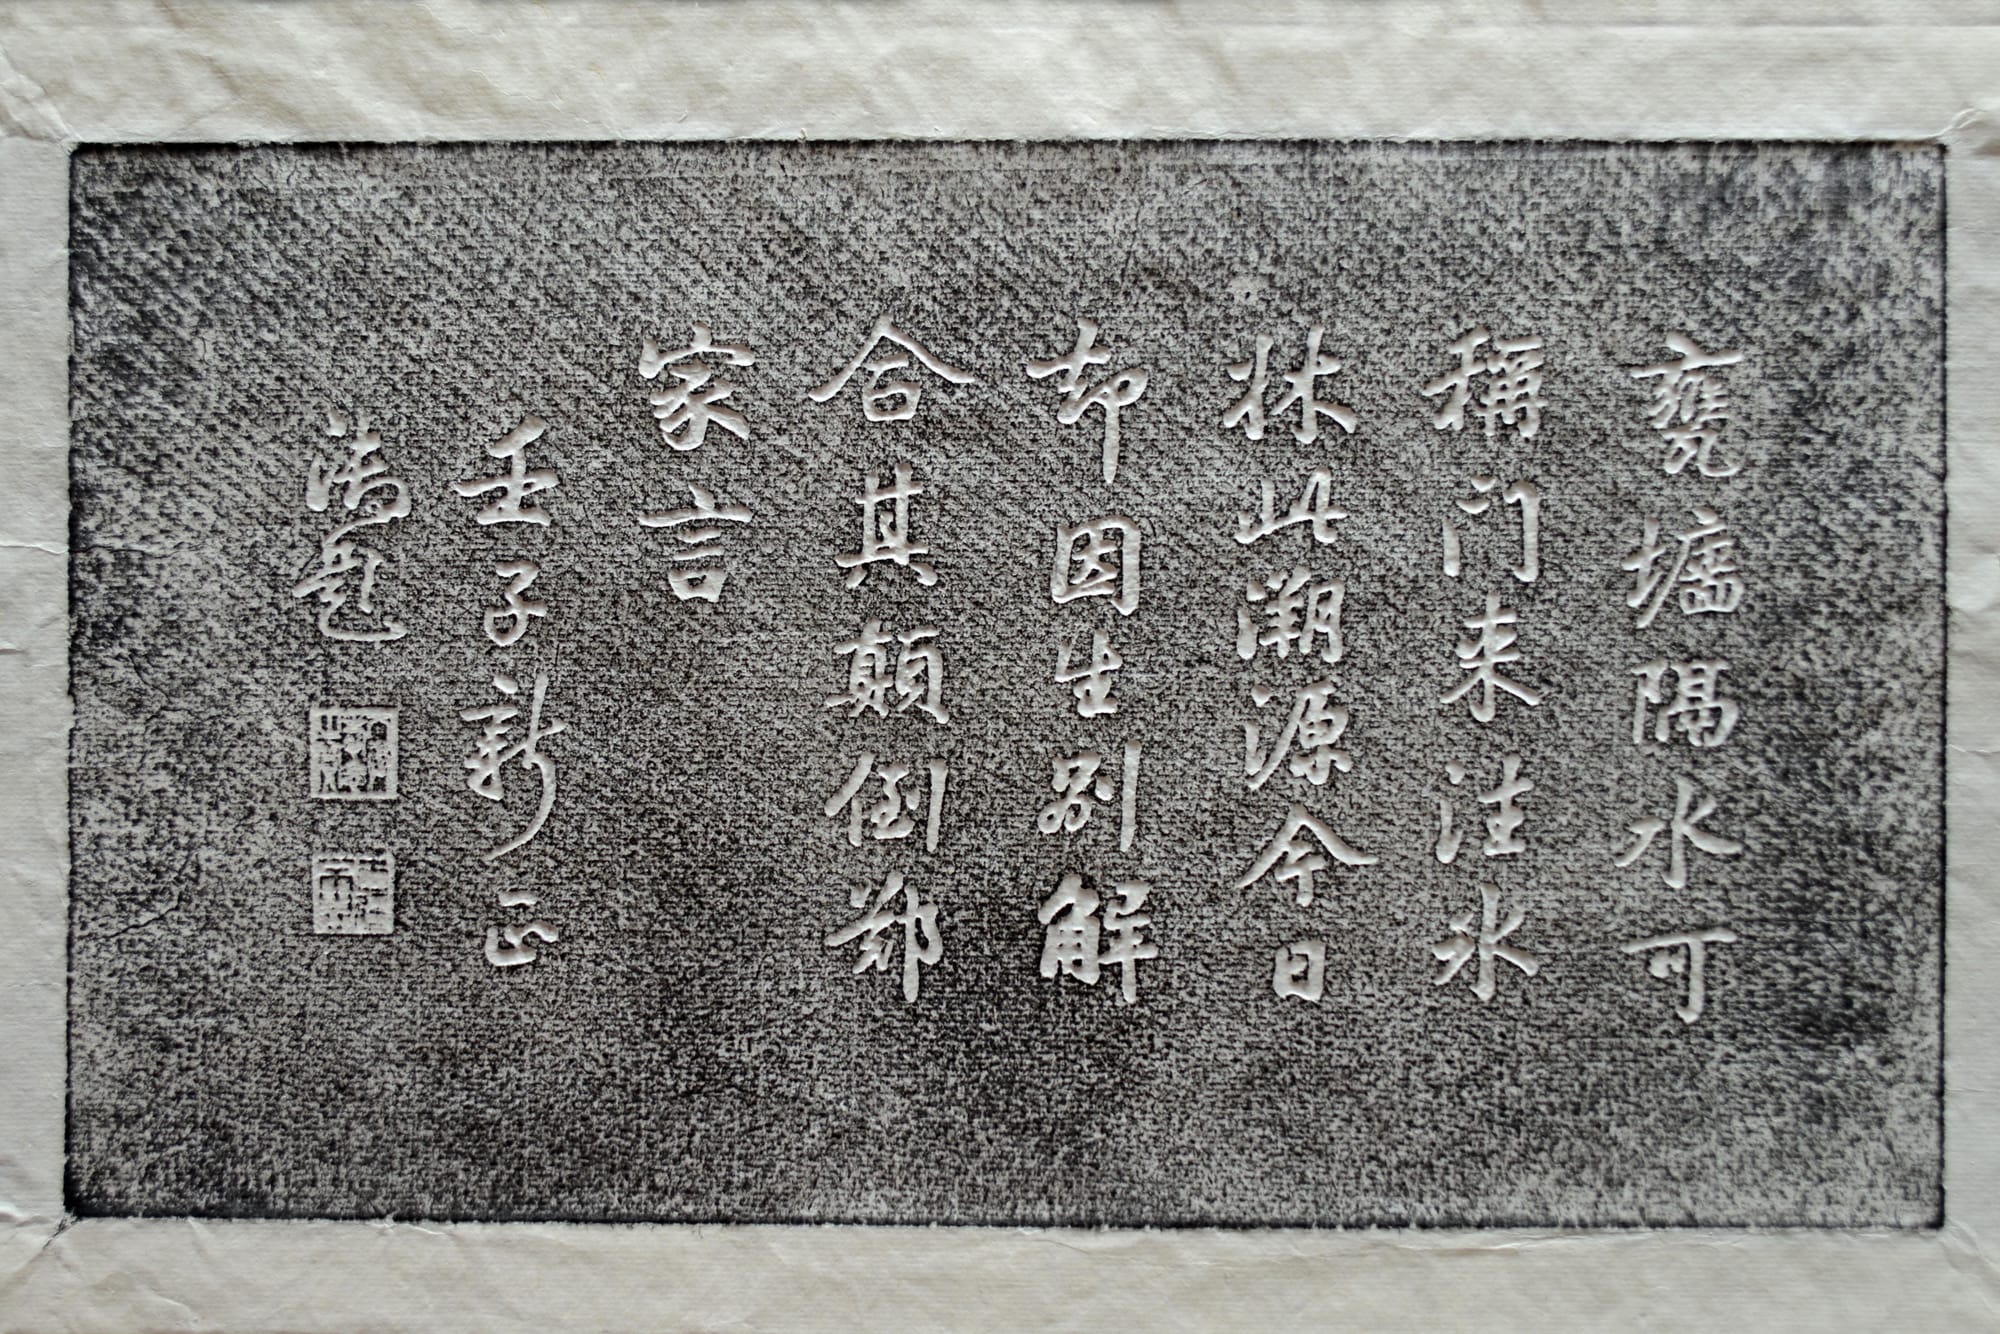 甕墻隔水可
稱門来注水
林此溯源今日
却因生別解
合其顛倒鄭
家言
壬子新正
御題